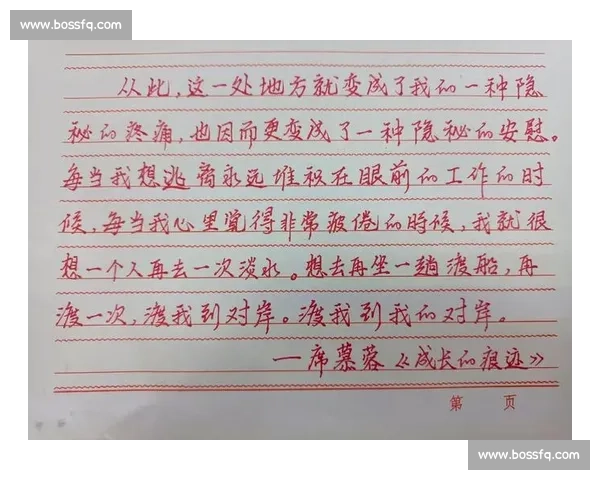 www.bossfq.com
从此，这一处地方就变成了我的一种隐
秘的疼痛，也因而更变成了一种隐秘的安慰。
每当我想逃离永远堆积在眼前的工作的时
候，每当我心里觉得非常疲倦的时候，我就很
想一个人再去一次淡水。想去再坐一趟渡船，再
渡一次，渡我到对岸。渡我到我的对岸。
——席慕蓉《成长的痕迹》
第 页
www.bossfq.com